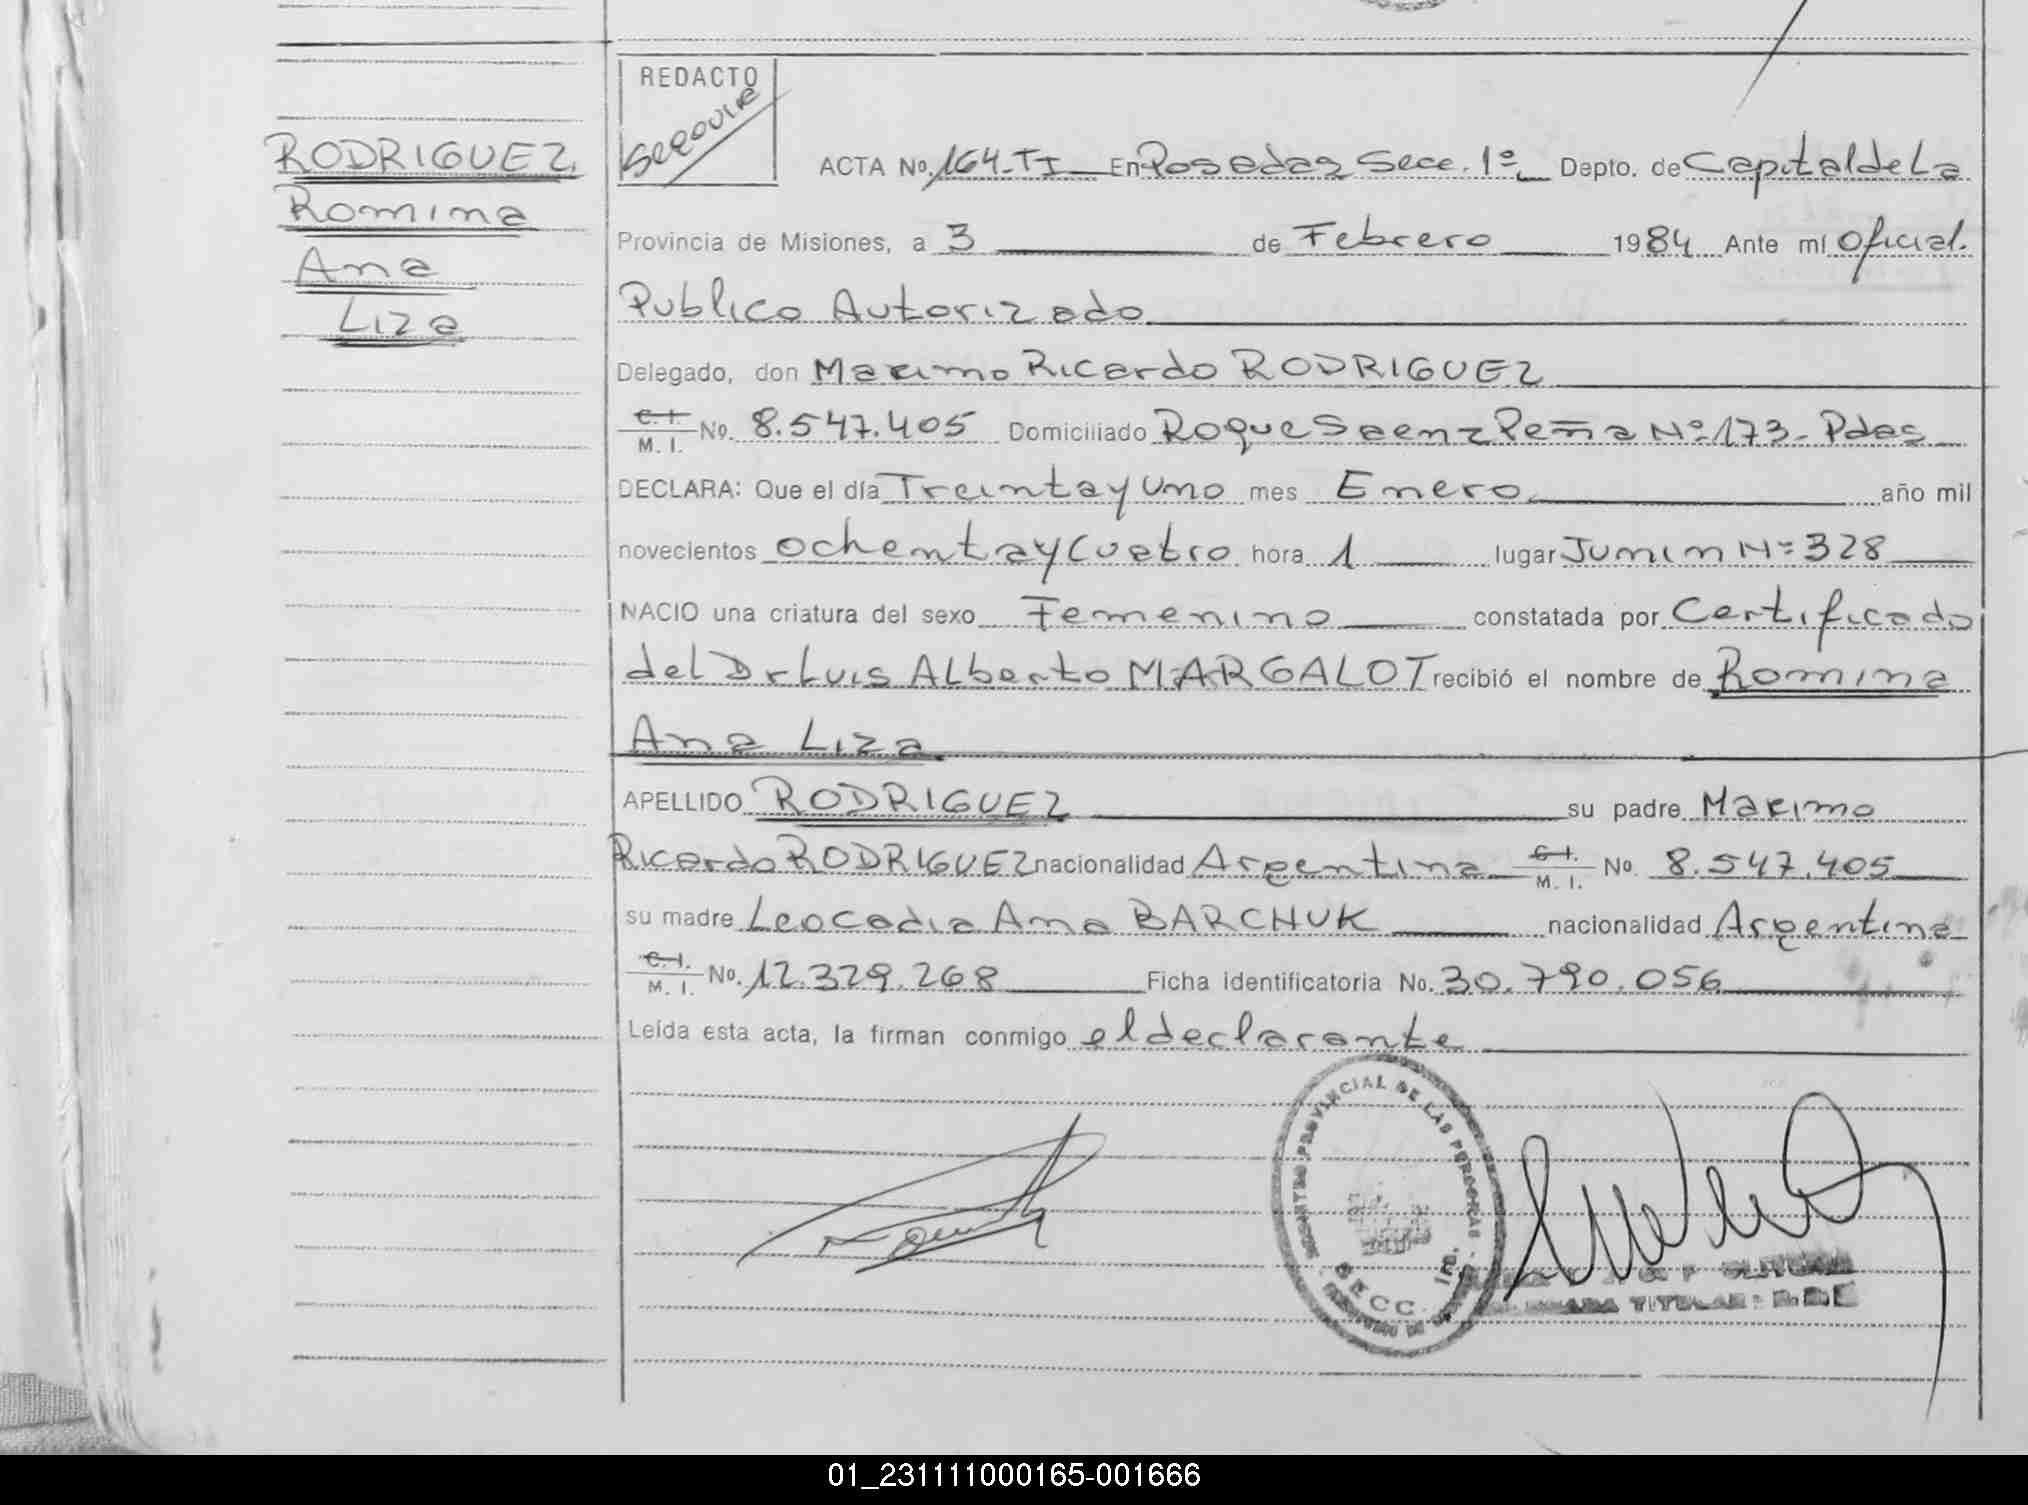 REDACTO
RODRIGUEZ
Romina
Ana
Liza
ACTA No. 164-TI En Posadas Secc. 1º Depto. de Capital de La
Provincia de Misiones, a 3 de Febrero 1984 Ante mí Oficial
Publico Autorizado
Delegado, don Maximo Ricardo RODRIGUEZ
C. I. M. I. No. 8.547.405 Domiciliado Roque Saenz Peña Nº 173- Pdas
DECLARA: Que el día Treinta y Uno mes Enero año mil
novecientos ochenta y Cuatro hora 1 lugar Junin Nº 328
NACIO una criatura del sexo Femenino constatada por Certificado
del Dr Luis Alberto MARGALOT recibió el nombre de Romina
Ana Liza
APELLIDO RODRIGUEZ su padre Maximo
Ricardo RODRIGUEZ nacionalidad Argentina C. I. M. I. No. 8.547.405
su madre Leocadia Ana BARCHUK nacionalidad Argentina
C. I. M. I. No. 12.329.268 Ficha identificatoria No. 30.790.056
Leída esta acta, la firman conmigo el declarante
PROVINCIAL DE LAS PERSONAS
SECC. 1ra.
TITULAR
01_231111000165-001666